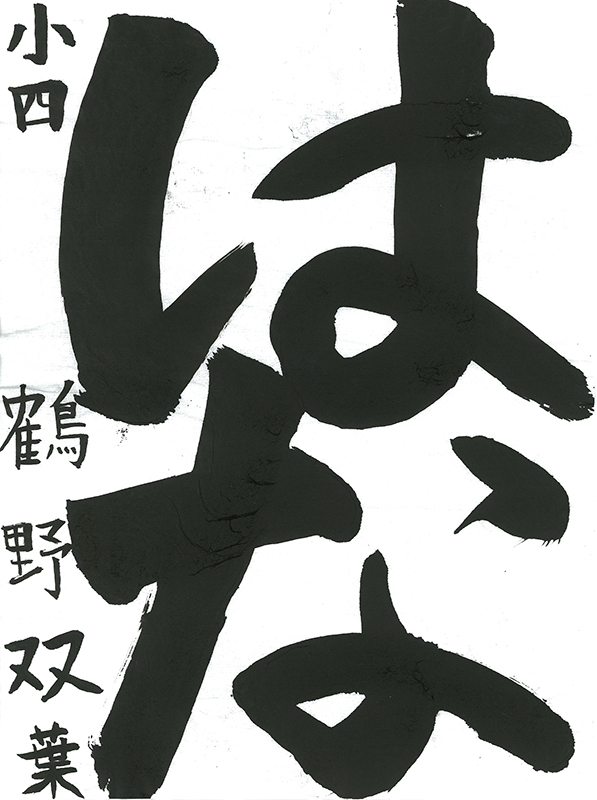 はな
小四 鶴野双葉